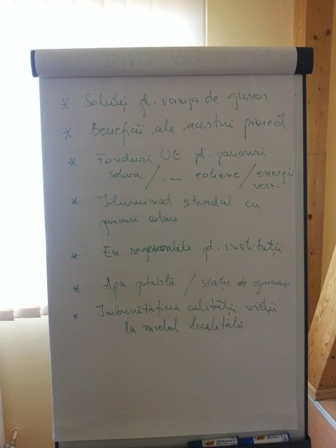 * Soluții pt. varița de gunoi
* Beneficii ale acestui proiect
* Fonduri UE pt. panouri
solare / ... eoliene / energii
verzi
* Iluminat stradal cu
panouri solare
* En. regenerabile pt. instituții
* Apa potabilă / stație de epurare
* Îmbunătățirea calității vieții
la nivelul localității